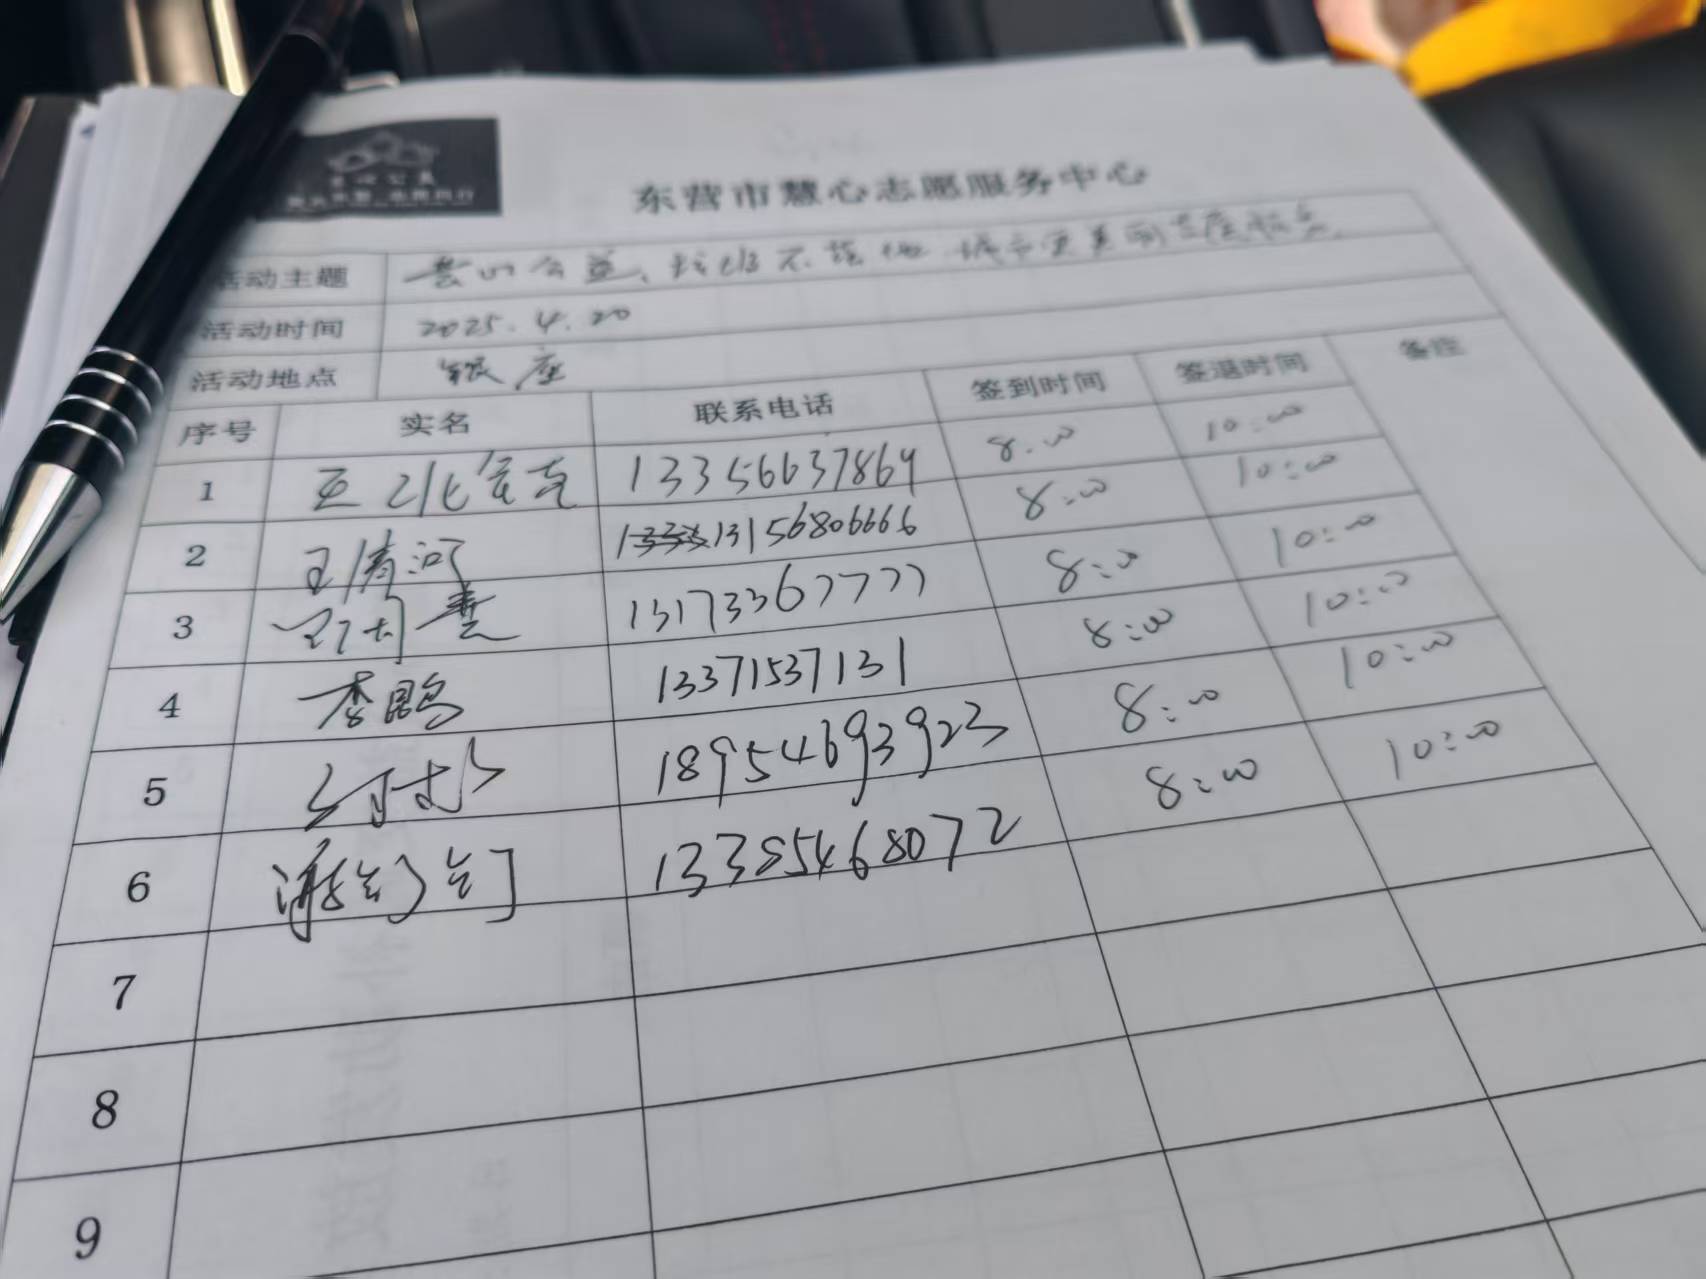 东营市慧心志愿服务中心
活动主题 公益、垃圾不落地 城市更美丽
活动时间 2025.4.20
活动地点 银座
序号 实名 联系电话 签到时间 签退时间 备注
1 13356637864 8:00 10:00
2 王清河 13156806666 8:00 10:00
3 13173367777 8:00 10:00
4 李鹏 13371537131 8:00 10:00
5 18954693923 8:00 10:00
6 13385468072 8:00 10:00
7
8
9